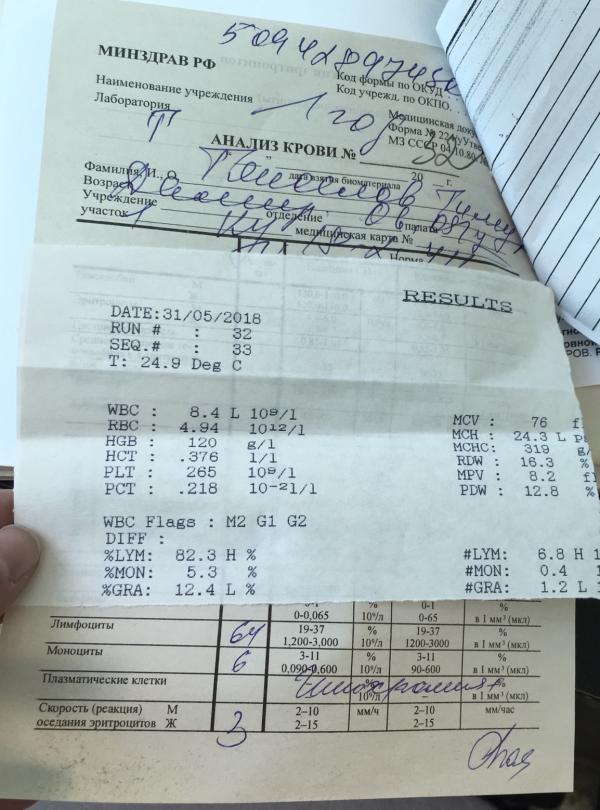 50942897450
МИНЗДРАВ РФ
Код формы по ОКУД
Наименование учреждения
Код учрежд. по ОКПО.
Лаборатория
1 год
Медицинская доку
Т
Форма № 224/у
АНАЛИЗ КРОВИ №
МЗ СССР 04.10.80
32
" " 20 г.
Фамилия, И., О.
дата взятия биоматериала
Возраст
Учреждение отделение палата
участок медицинская карта №
Норма
RESULTS
DATE:31/05/2018
RUN # : 32
SEQ.# : 33
T: 24.9 Deg C
WBC : 8.4 L 10⁹/l MCV : 76 fl
RBC : 4.94 10¹²/l MCH : 24.3 L p
HGB : 120 g/l MCHC: 319 g/
HCT : .376 l/l RDW : 16.3 %
PLT : 265 10⁹/l MPV : 8.2 fl
PCT : .218 10⁻²l/l PDW : 12.8 %
WBC Flags : M2 G1 G2
DIFF :
%LYM: 82.3 H % #LYM: 6.8 H 1
%MON: 5.3 % #MON: 0.4 1
%GRA: 12.4 L % #GRA: 1.2 L 1
0-1 % 0-1 %
0-0,065 10⁹/л 0-65 в 1 мм³ (мкл)
Лимфоциты 64 19-37 % 19-37 %
1,200-3,000 10⁹/л 1200-3000 в 1 мм³ (мкл)
Моноциты 6 3-11 % 3-11 %
0,090-0,600 10⁹/л 90-600 в 1 мм³ (мкл)
Плазматические клетки % %
10⁹/л – в 1 мм³ (мкл)
Скорость (реакция) М 2–10 мм/ч 2–10 мм/час
оседания эритроцитов Ж 3 2–15 2–15